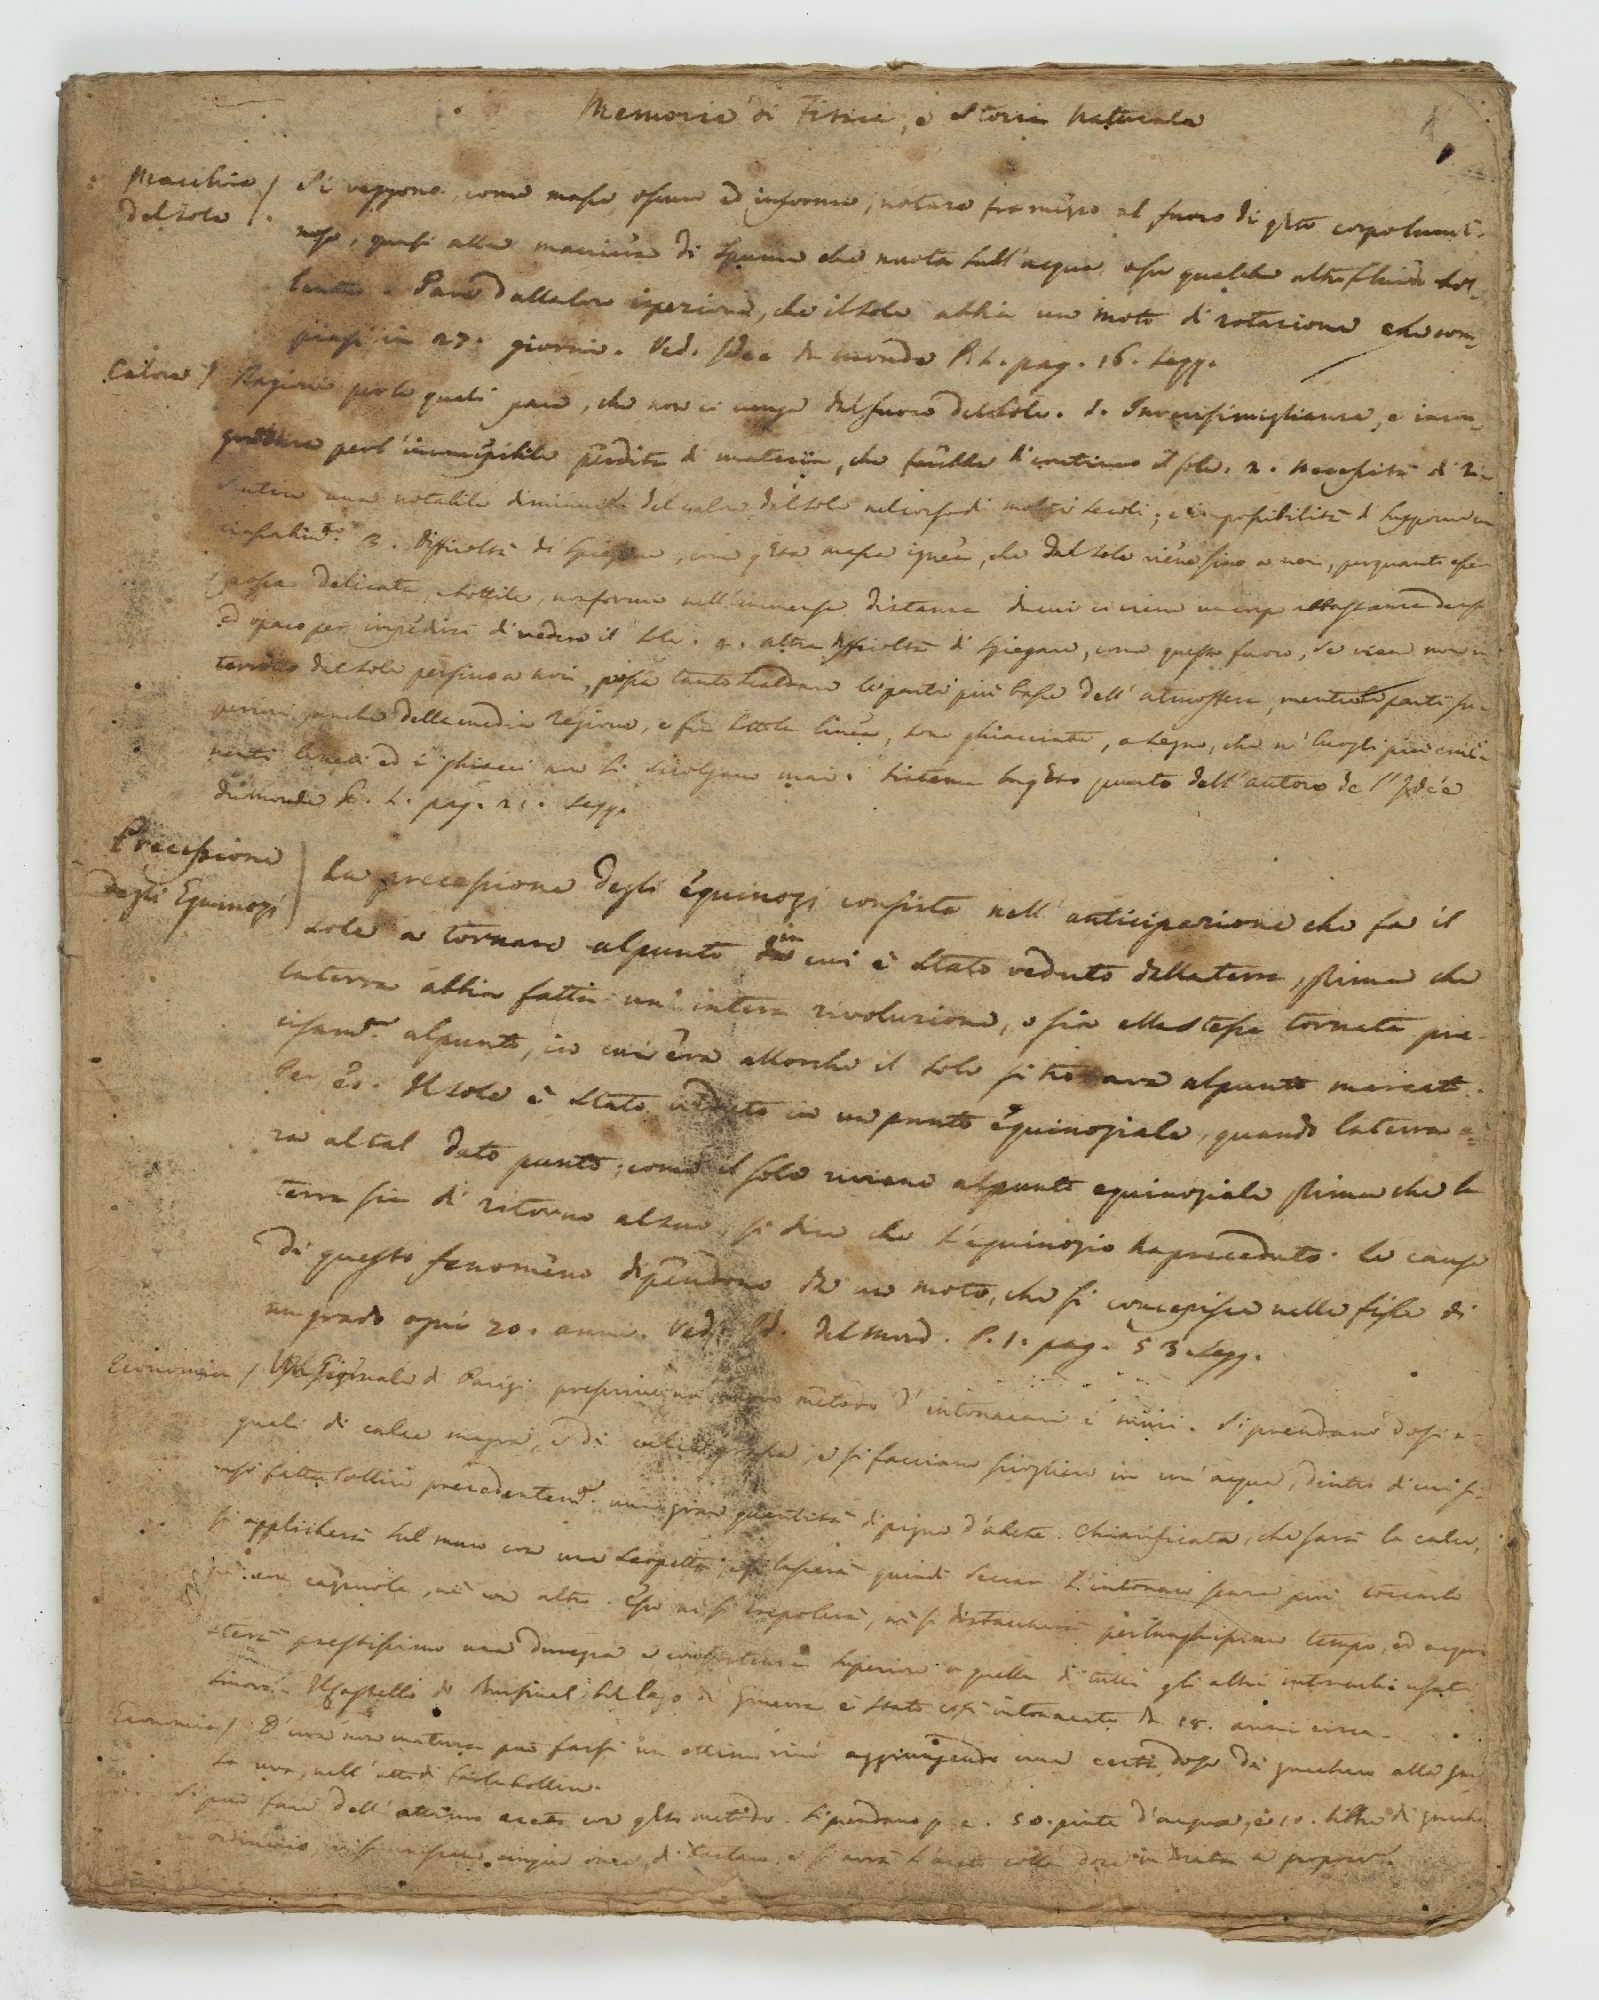 Memorie di Fisica, e Storia Naturale
1
Macchie
del Sole
Si veggono, come masse oscure ed informi, notare framezzo al fuoco di qsto corpo lumi-
noso, quasi alla maniera di spuma che nuota sull'acqua, o su qualche altro fluido bol-
lente. Pare dalla loro ispezione, che il sole abbia un moto di rotazione che com-
piasi in 27. giorni. Ved. Idée du monde P. I. pag. 16. segg.
Calore
Ragioni per le quali pare, che non ci venga dal fuoco del sole. 1. Inverisimiglianza, e incon-
per l' perdita di materia, che farebbe di continuo il sole. 2. Necessità di
sentire una notabile diminuità del calor del sole nel corso di molti secoli; e impossibilità di supporne un
3. Difficoltà di spiegare, come qsta massa ignea, che dal sole viene fino a noi, per quanto esser
possa delicata, e sottile, non formi nell'immensa distanza da cui ci viene un corpo abbastanza denso
ed opaco per impedirci di vedere il sole. 4. altra difficoltà di spiegare, come questo fuoco, se viene non in-
terrotto dal sole persino a noi, possa tanto scaldare le parti più basse dell'atmosfera, mentre le parti su-
periori anche della media regione, e fin sotto la linea, sono ghiacciate, a segno, che ne' luoghi più emi-
nenti le nevi ed i ghiacci non si sciolgano mai. Sistema su qsto punto dell'autore de l'Idée
du monde P. I. pag. 21. segg.
Precessione
degli Equinozj
La precessione degli equinozj consiste nell'anticipazione che fa il
sole a tornare al punto in cui è stato veduto dalla terra, prima che
la terra abbia fatta un'intera rivoluzione, o sia ella stessa tornata pre-
cisamte. al punto, in cui era allorchè il sole si trovava al punto marcato.
Per es. Il sole è stato veduto in un punto equinoziale, quando la terra e-
ra al tal dato punto; come il sole riviene al punto equinoziale prima che la
terra sia di ritorno al suo, si dice che l'equinozio ha preceduto. Le cause
di questo fenomeno dipendono da un moto, che si concepisce nelle fisse di
un grado ogni 70. anni. Ved. Id. del Mond. P. I. pag. 53 segg.
Economia
Nel Giornale di Parigi un nuovo metodo d'intonacare i muri. Si prendano dosi e-
guali di calce magra, e di calce grassa, e si facciano sciogliere in un'acqua, dentro di cui si
sia fatta bollire precedentemte. una gran quantità di pigne d'abete. Chiarificata, che sarà la calce,
si applicherà sul muro con una scopetta, e si lascerà quindi seccar l'intonaco senza più toccarlo
nè con cazzuola, nè con altro. Esso nè si screpolerà, nè si distaccherà per lunghissimo tempo, ed acqui-
sterà prestissimo una durezza e consistenza superiore a quella di tutti gli altri intonachi usati
sinora. Il castello di sul lago di Ginevra è stato così intonacato da 18. anni circa.
Economia
D'uva non matura può farsi un ottimo vino aggiungendo una certa dose di zucchero alla sua
uva, nell'atto di farla bollire.
Si può fare dell'ottimo aceto con qsto metodo. Si prendano p. e. 50. pinte d'acqua, e 10. libbre di zucche-
ro ordinario, vi si cinque once di tartaro, e si avrà l'aceto colla dose indicata a proporne.